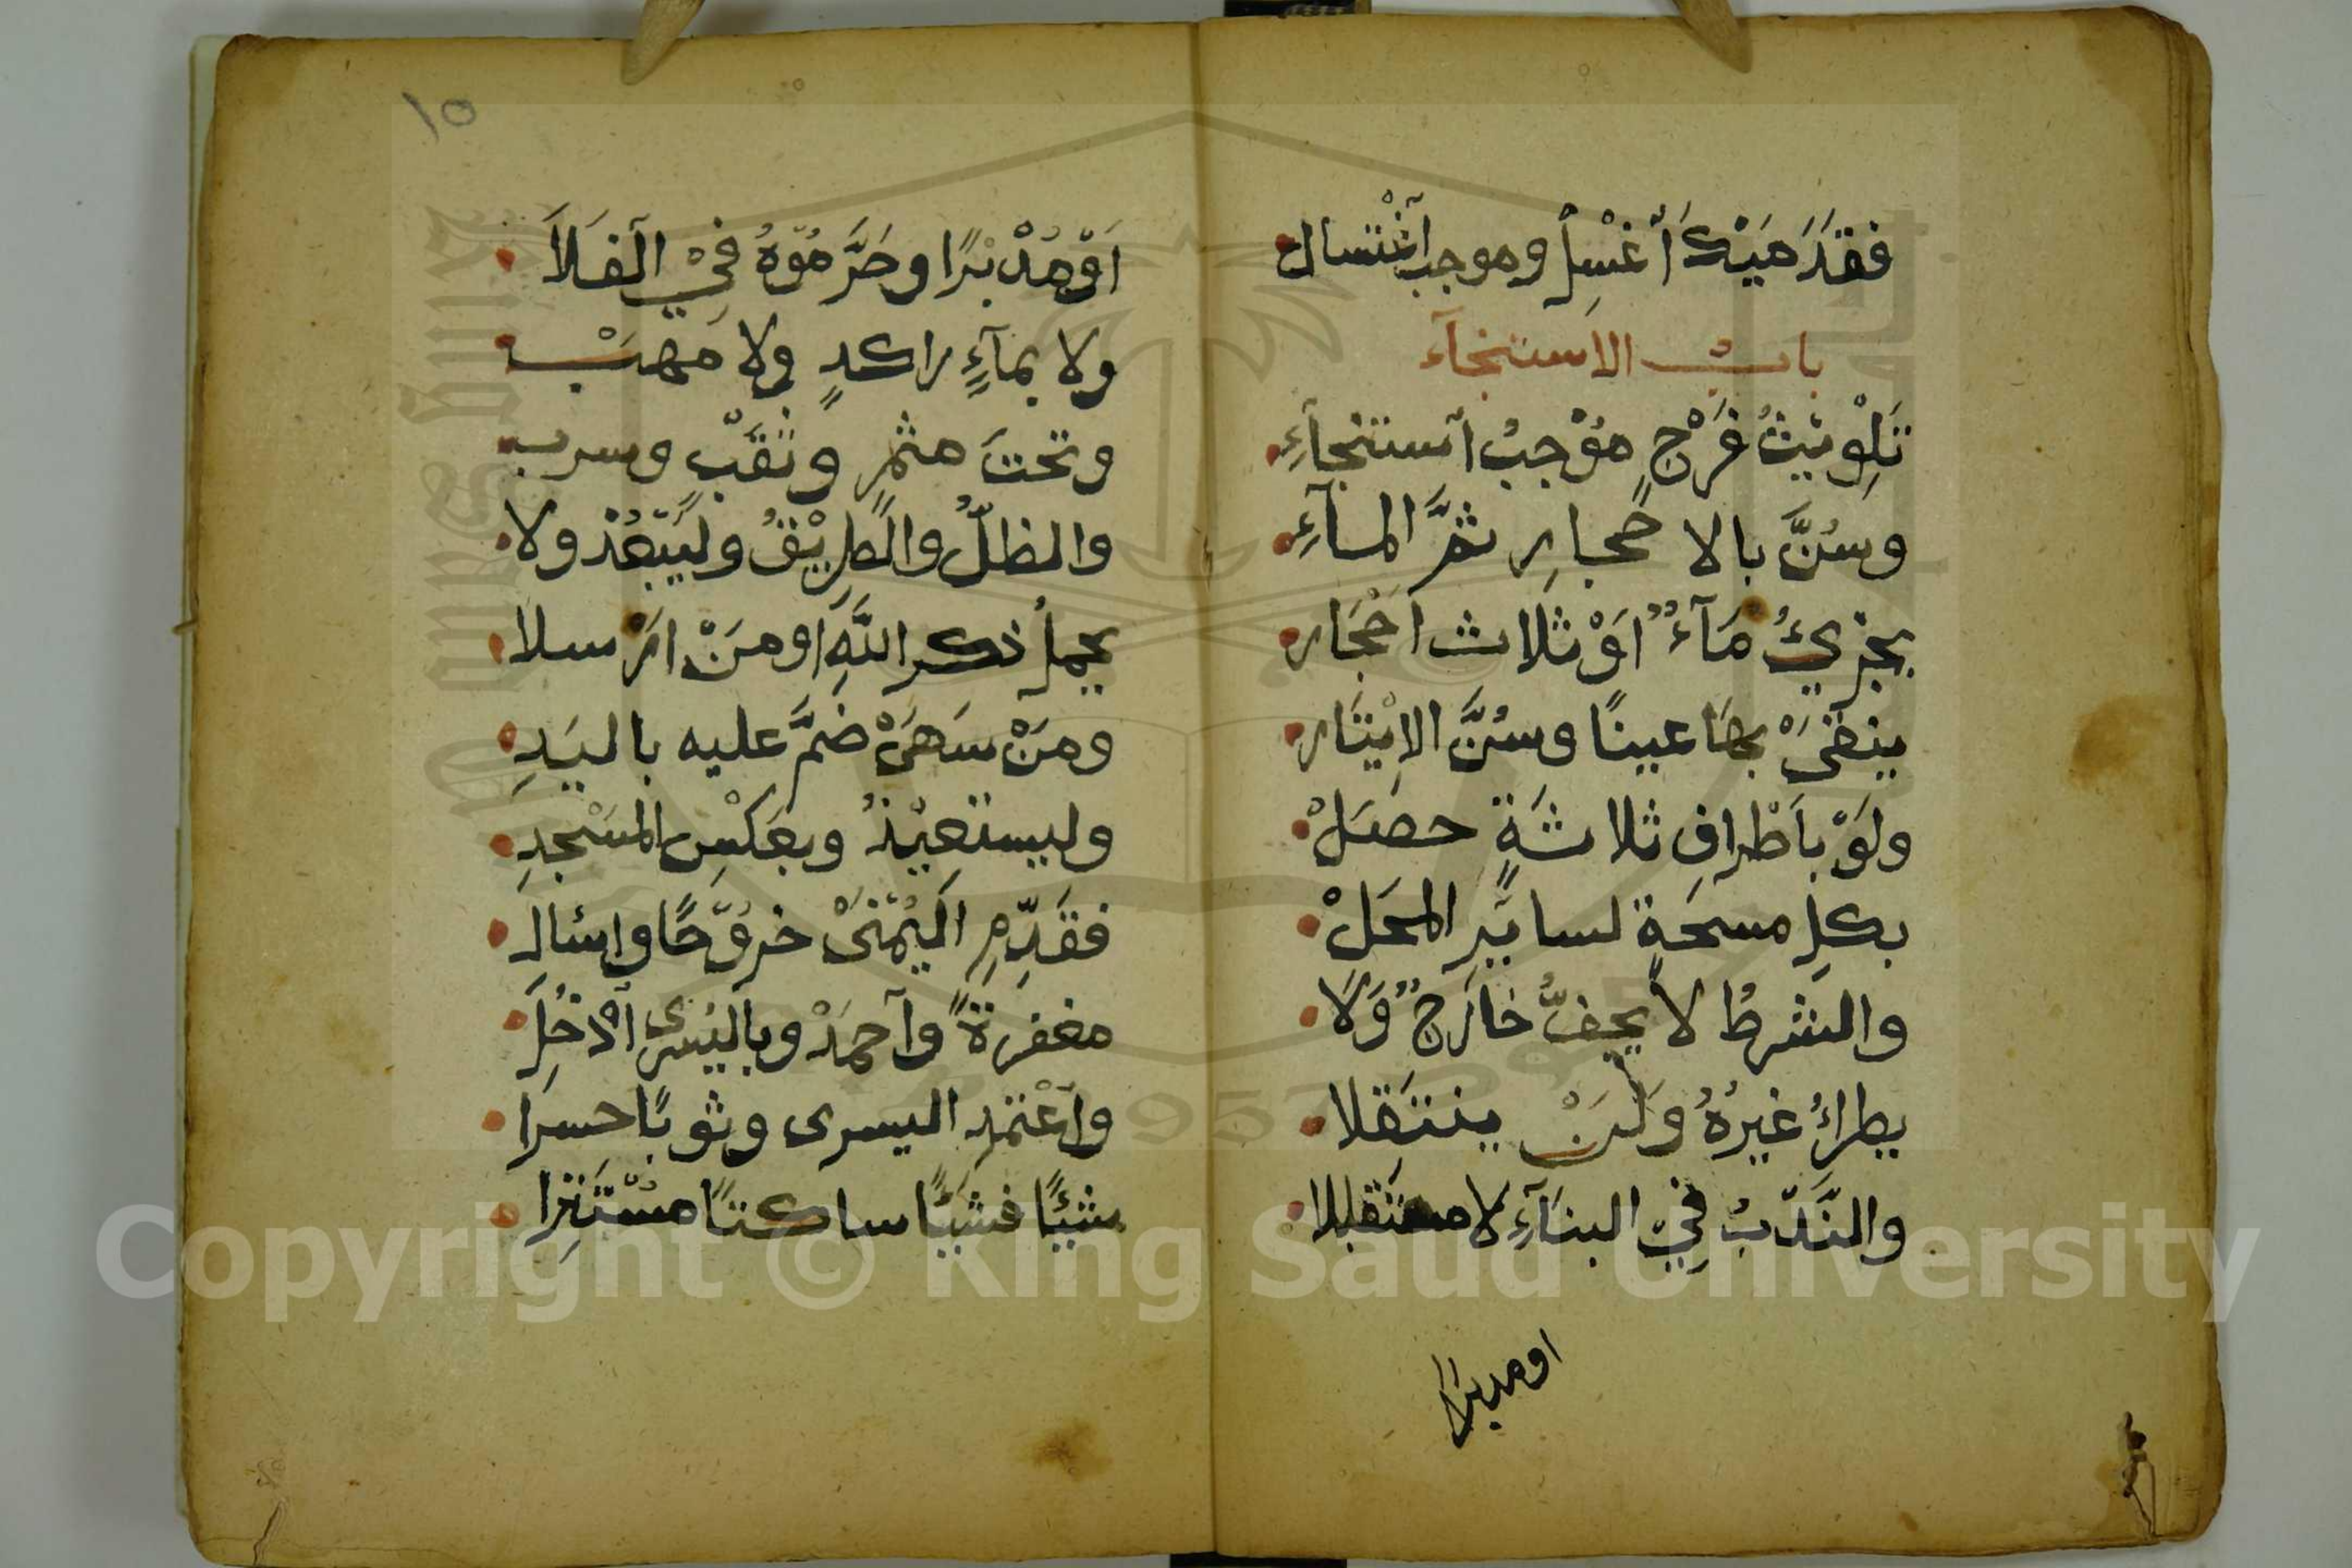 فقدَ مَيْتكَ أغْسِلْ وموجب آغْتسال
بابُ الاستنجآء
تَلِوْيْثُ فَرْجٍ مُوْجبُ آستنجآءِ
وسُنَّ بالاحجارِ ثمَّ المآءِ
يجزيُ مَآءٌ اوْ ثلاث احْجَار
ينقىْ بهَا عينًا وسُنَّ الاِيْتَار
ولوْ باَطْرافِ ثلاثةٍ حصَلْ
بكلِ مسحَةٍ لسايَرِ المحَلْ
والشرطُ لا يجفُّ خارجٌ وَلاَ
يطراءُ غيرُهُ ولَنْ ينتقلا
والنَّدْبُ فِيْ البنآءِ لا مستقبلا
او مدبرًا
١٥
اَوْ مُدْبرًا وحَرَّمُوّهُ فِيْ الَفلاَ
ولا بمآءٍ راكدٍ ولا مَهبْ
وتحتَ مثمرٍ وثقبْ وسرب
والظلُّ والطرِيْقُ وليَبْعُدْ ولا
يحملْ ذكر اللهِ او مَنْ ارْسلا
ومَنْ سَهَىْ ضمَّ عليه باليَدِ
وليستعيْذُ وبعَكْسِ المسْجدِ
فقَدِّمِ اليُمْنىْ خروْجًا واسْال
مغفرةً وآحمَدْ وباليُسرى أدْخُلِ
واعْتمد اليسرى وثوبًا حسرَا
شيْئًا فشيْئًا ساكتًا مسْتَتِرا
Copyright © King Saud University